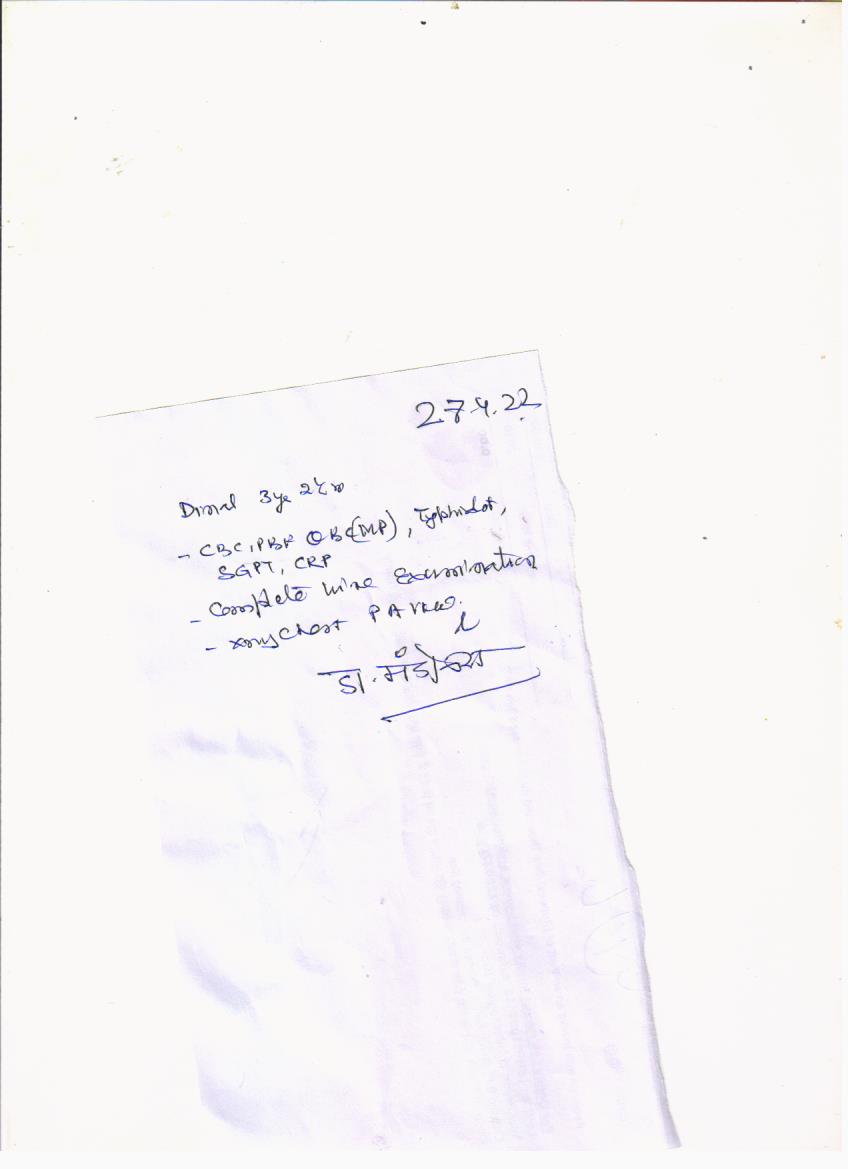 27.4.22
3ye
- CBC, PBF QBC(MP), Typhidot,
SGPT, CRP
- Complete urine Examination
- xray Chest P A view.
डा.